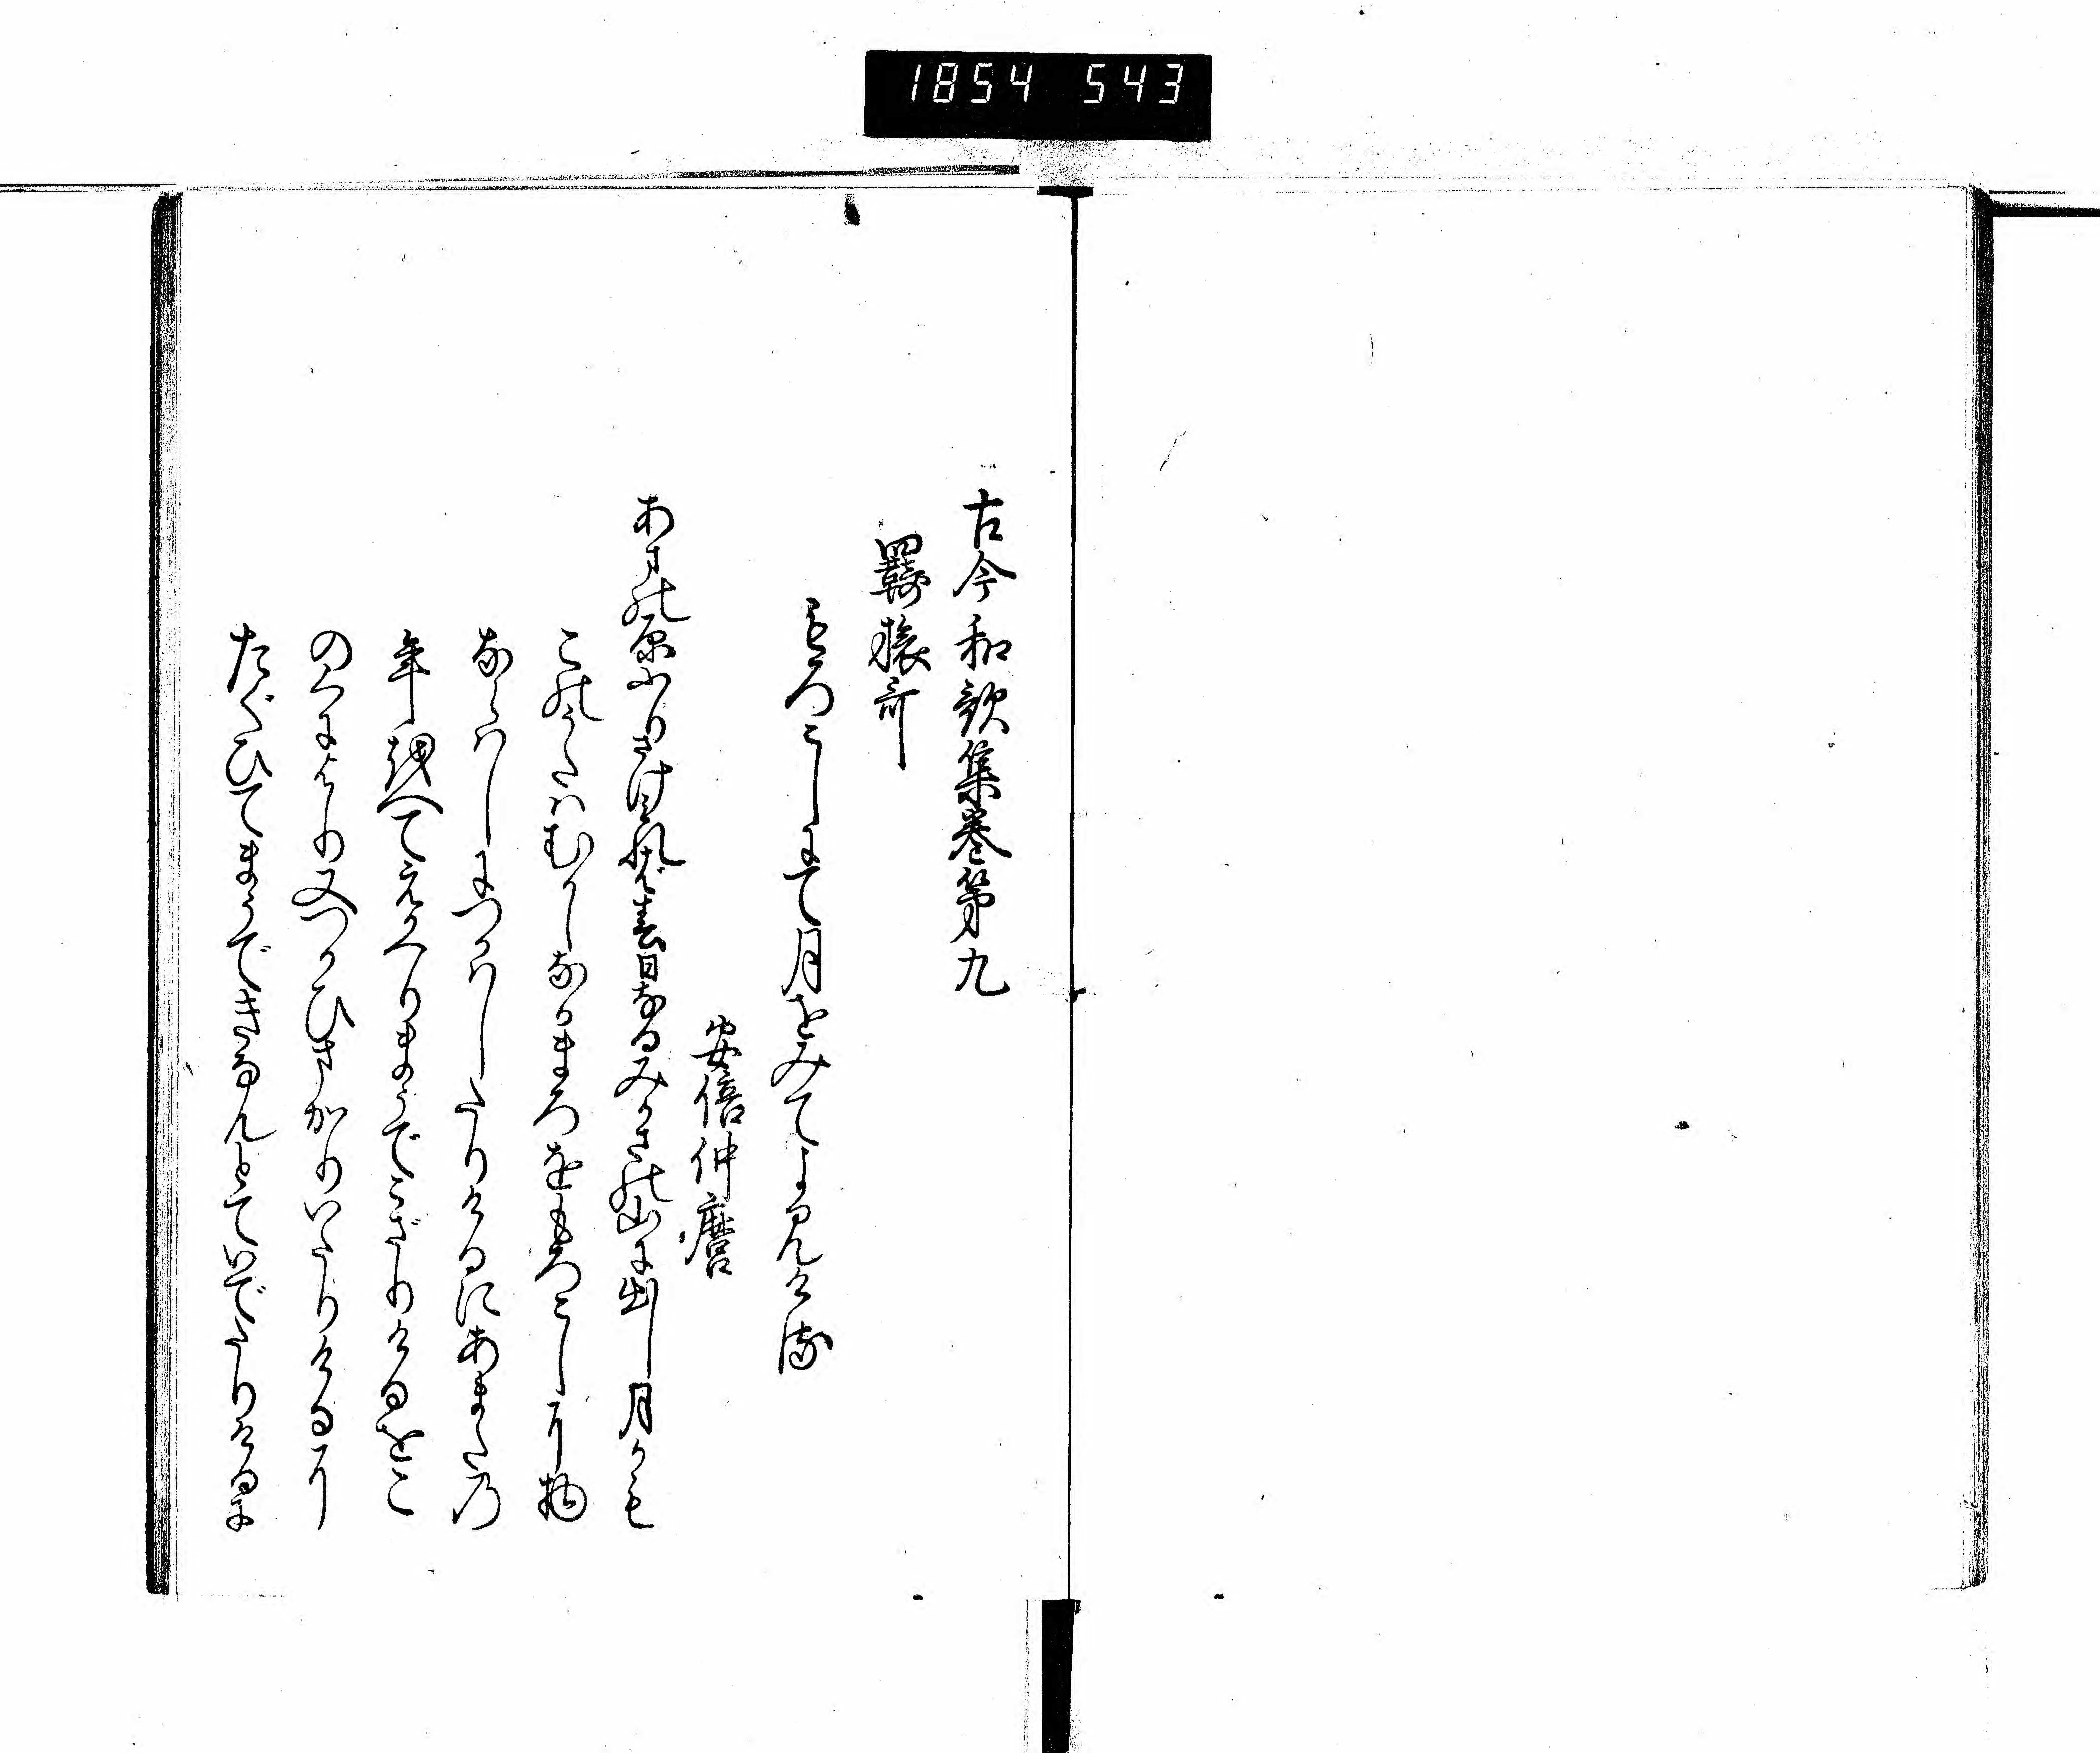 1854 543
古今和歌集巻第九
羇旅哥
もろこしにて月をみてよみける
安倍仲麿
あまの原ふりさけ見れば春日なるみかさの山に出し月かも
この哥はむかしなかまろをもろこしに物
ならはしにつかはしたりけるにあまたの
年を越へてえかへりまうでこざりけるをこ
のくにより又つかひまかりいたりけるに
たぐひてまうできなんとていでたりけるに